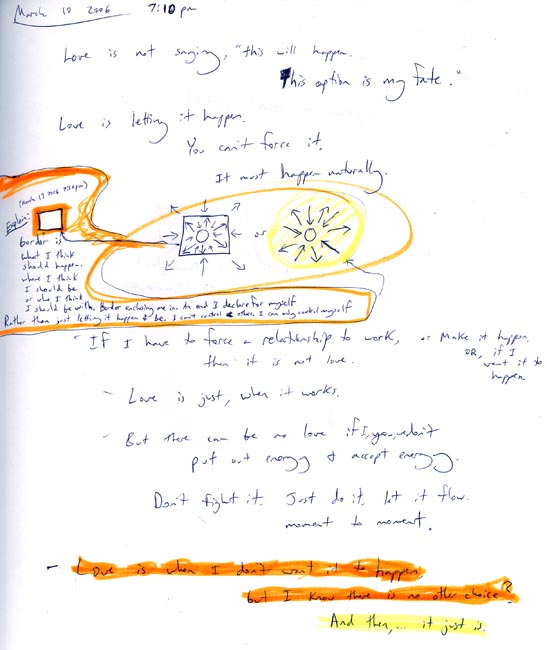 March 10 2006 7:10 pm
Love is not saying, "this will happen.
This option is my fate."
Love is letting it happen.
You can't force it.
It must happen naturally.
(March 17 2006 7:50pm)
Explain:
border is
what I think
should happen.
where I think
I should be
or who I think
I should be with. Border enclosing me in. An end I declare for myself
Rather than just letting it happen & be. I can't control others, I can only control myself
or
- If I have to force a relationship to work, or Make it happen.
OR, if I
want it to
happen.
then it is not love.
- Love is just, when it works.
- But there can be no love if I, you, we don't
put out energy & accept energy.
Don't fight it. Just do it. let it flow.
moment to moment.
- Love is when I don't want it to happen,
but I know there is no other choice?
And then,... it just is.